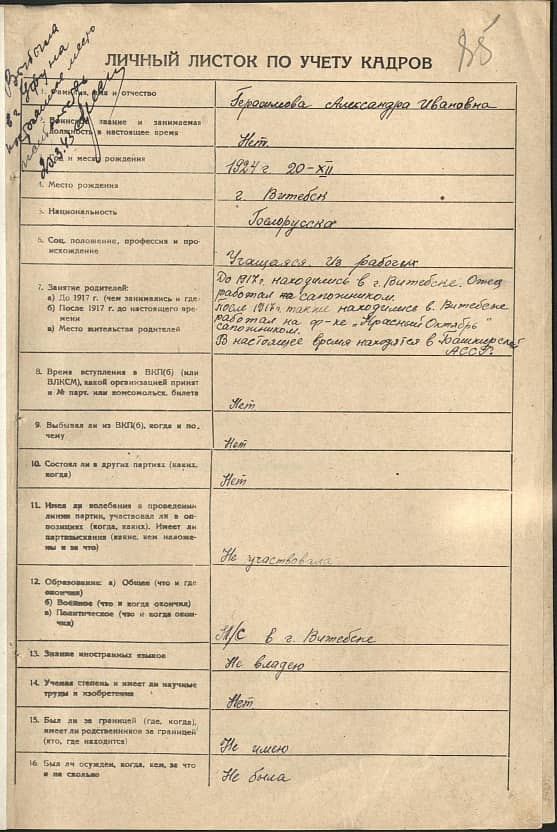 85
Выбыла
в г. Уфу на
постоянное место
жительства
25.3.45
ЛИЧНЫЙ ЛИСТОК ПО УЧЕТУ КАДРОВ
1. Фамилия, имя и отчество
Герасимова Александра Ивановна
2. Воинское звание и занимаемая
должность в настоящее время
Нет
3. Год и место рождения
1924 г. 20-XII
4. Место рождения
г. Витебск
5. Национальность
Белорусска
6. Соц. положение, профессия и про-
исхождение
Учащаяся. Из рабочих
7. Занятие родителей:
а) До 1917 г. (чем занимались и где
б) После 1917 г. до настоящего вре-
мени
в) Место жительства родителей
До 1917г. находились в г. Витебске. Отец
работал сапожником.
После 1917г. также находились в. Витебске
работал на ф-ке „Красный Октябрь"
сапожником.
В настоящее время находятся в Башкирской
АССР.
8. Время вступления в ВКП(б) (или
ВЛКСМ), какой организацией принят
и № парт. или комсомольск. билета
Нет
9. Выбывал ли из ВКП(б), когда и по-
чему
Нет
10. Состоял ли в других партиях (каких,
когда)
Нет
11. Имел ли колебания в проведении
линии партии, участвовал ли в оп-
позициях (когда, каких). Имеет ли
партвзыскания (какие, кем наложе-
ны и за что)
Не участвовала
12. Образование: а) Общее (что и где
окончил)
б) Военное (что и когда окончил)
в) Политическое (что и когда окон-
чил)
Н/С в г. Витебске
13. Знание иностранных языков
Не владею
14. Ученая степень и имеет ли научные
труды и изобретения
Нет
15. Был ли за границей (где, когда),
имеет ли родственников за границей
(кто, где находится)
Не имею
16. Был ли осужден, когда, кем, за что
и на сколько
Не была